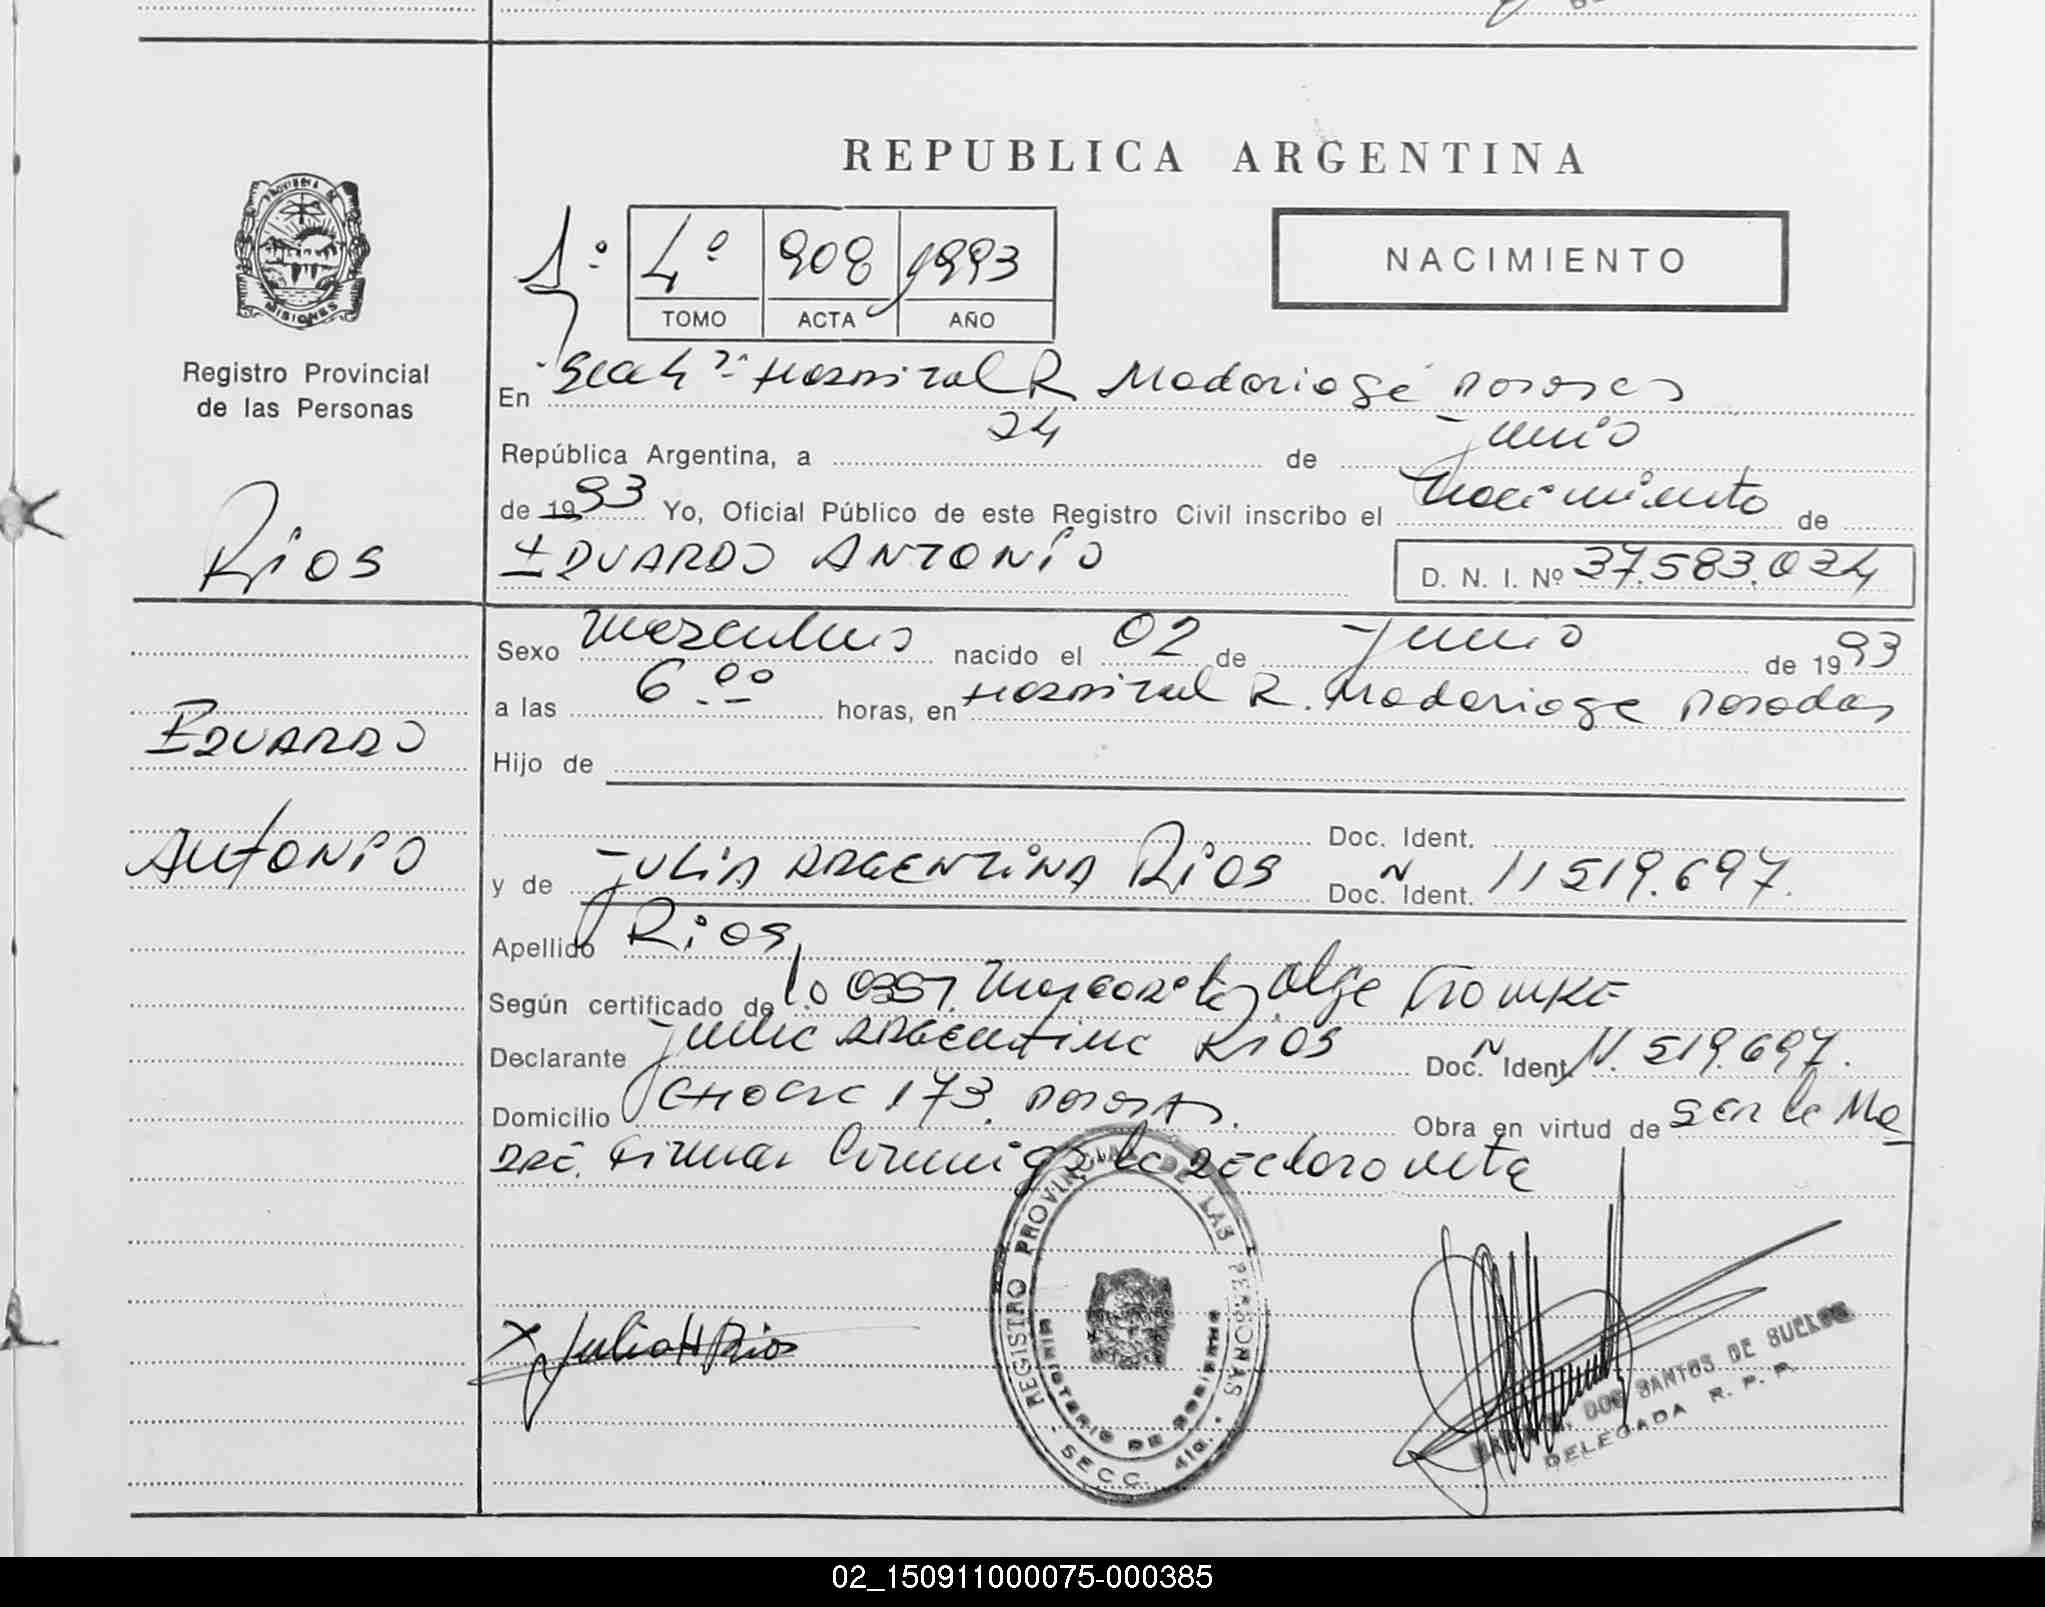 REPUBLICA ARGENTINA
PROVINCIA DE MISIONES
Registro Provincial
de las Personas
NACIMIENTO
1º 4º 908 1993
TOMO ACTA AÑO
En Secc 4ª Hospital R Madariaga Posadas
República Argentina, a 24 de junio
de 1993 Yo, Oficial Público de este Registro Civil inscribo el nacimiento de
Rios
EDUARDO ANTONIO D. N. I. Nº 37.583.034
Sexo masculino nacido el 02 de junio de 1993
a las 6 00 horas, en Hospital R. Madariaga Posadas
EDUARDO
Hijo de
Doc. Ident.
ANTONIO
y de JULIA ARGENTINA RIOS Doc. Ident. Nº 11 519.697.
Apellido Rios
Según certificado de Margarita Olga
Declarante Julia Argentina Rios Doc. Ident. Nº 11.519.697.
Domicilio 173. Posadas. Obra en virtud de ser la Ma-
dre. Firma conmigo la declarante
REGISTRO PROVINCIAL DE LAS PERSONAS
MINISTERIO DE GOBIERNO
SECC. 4ta.
x Julia A Rios
DOS SANTOS DE
DELEGADA R. P. P.
02_150911000075-000385